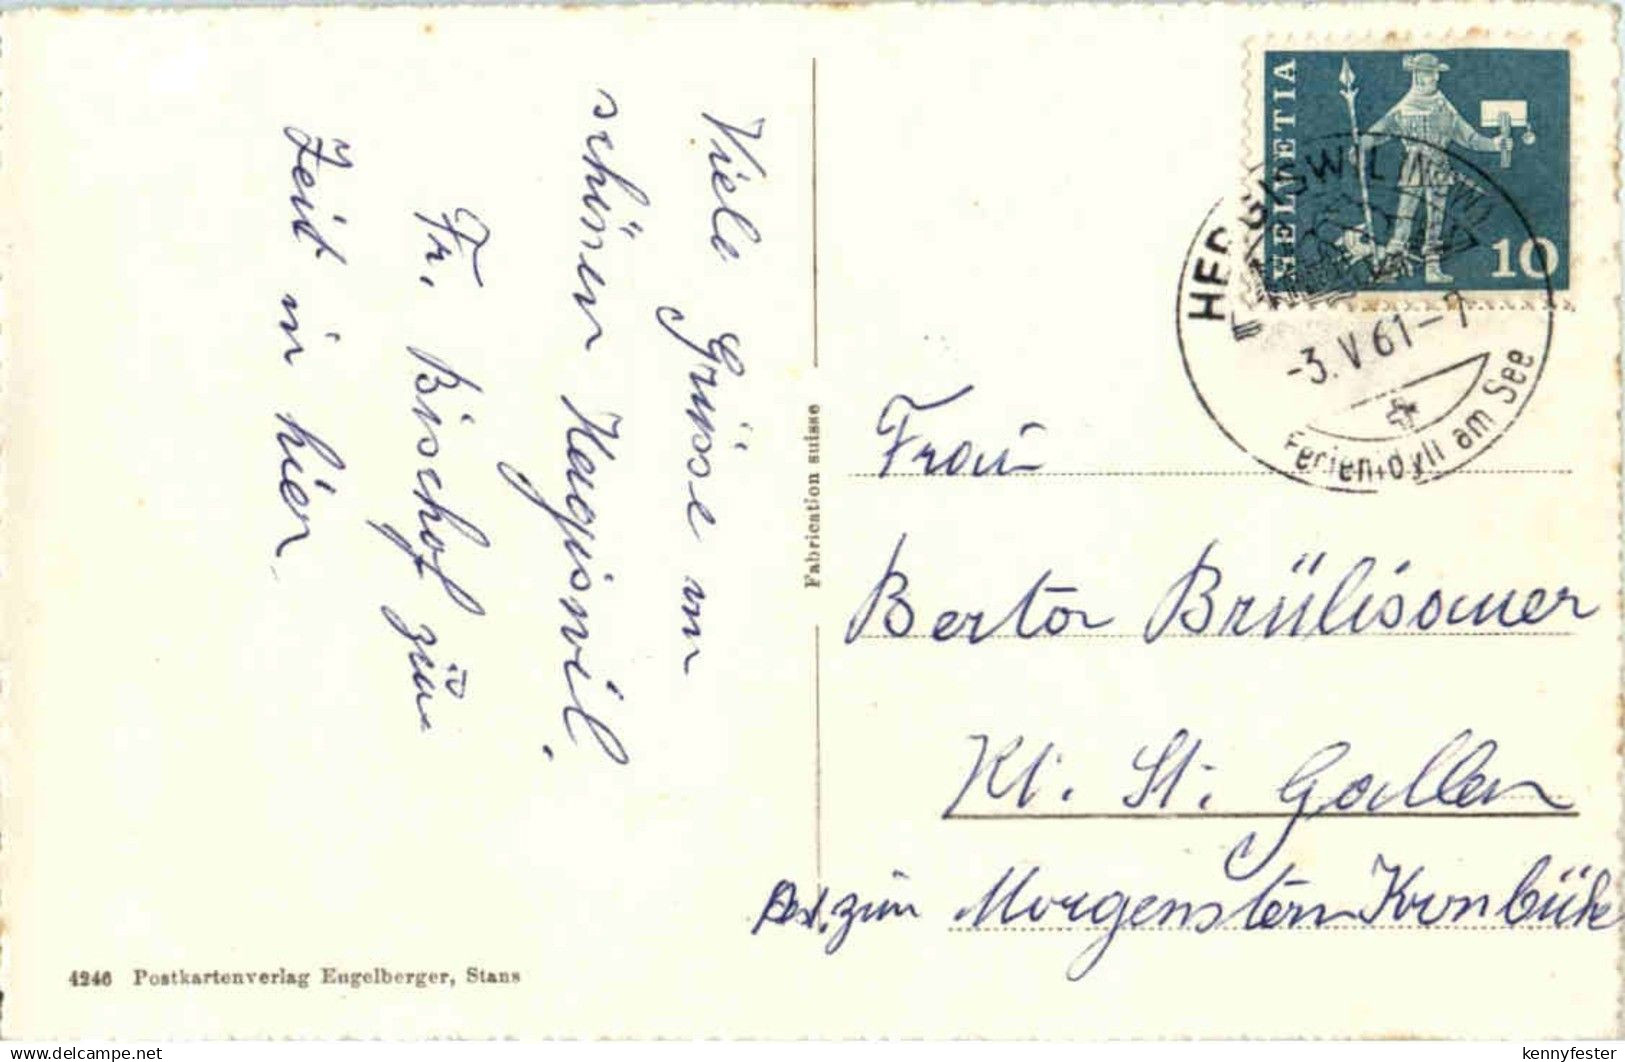 Viele Grüsse vom
schönen Hergiswil.
Fr. Bischof zur
Zeit in hier
Fabrication suisse
HELVETIA
10
HERGISWIL (NIDW)
-3.V.61-7
Ferienidyll am See
Frau
Berta Brülisauer
Kt. St. Gallen
Rest. zum Morgenstern Kronbühl
4246 Postkartenverlag Engelberger, Stans
kennyfester